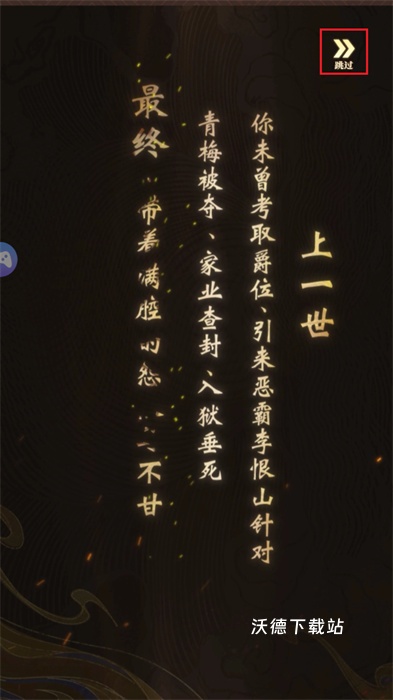 跳过
上一世
你未曾考取爵位、引来恶霸李恨山针对
青梅被夺、家业查封、入狱垂死
最终
带着满腔的怨
不甘
沃德下载站